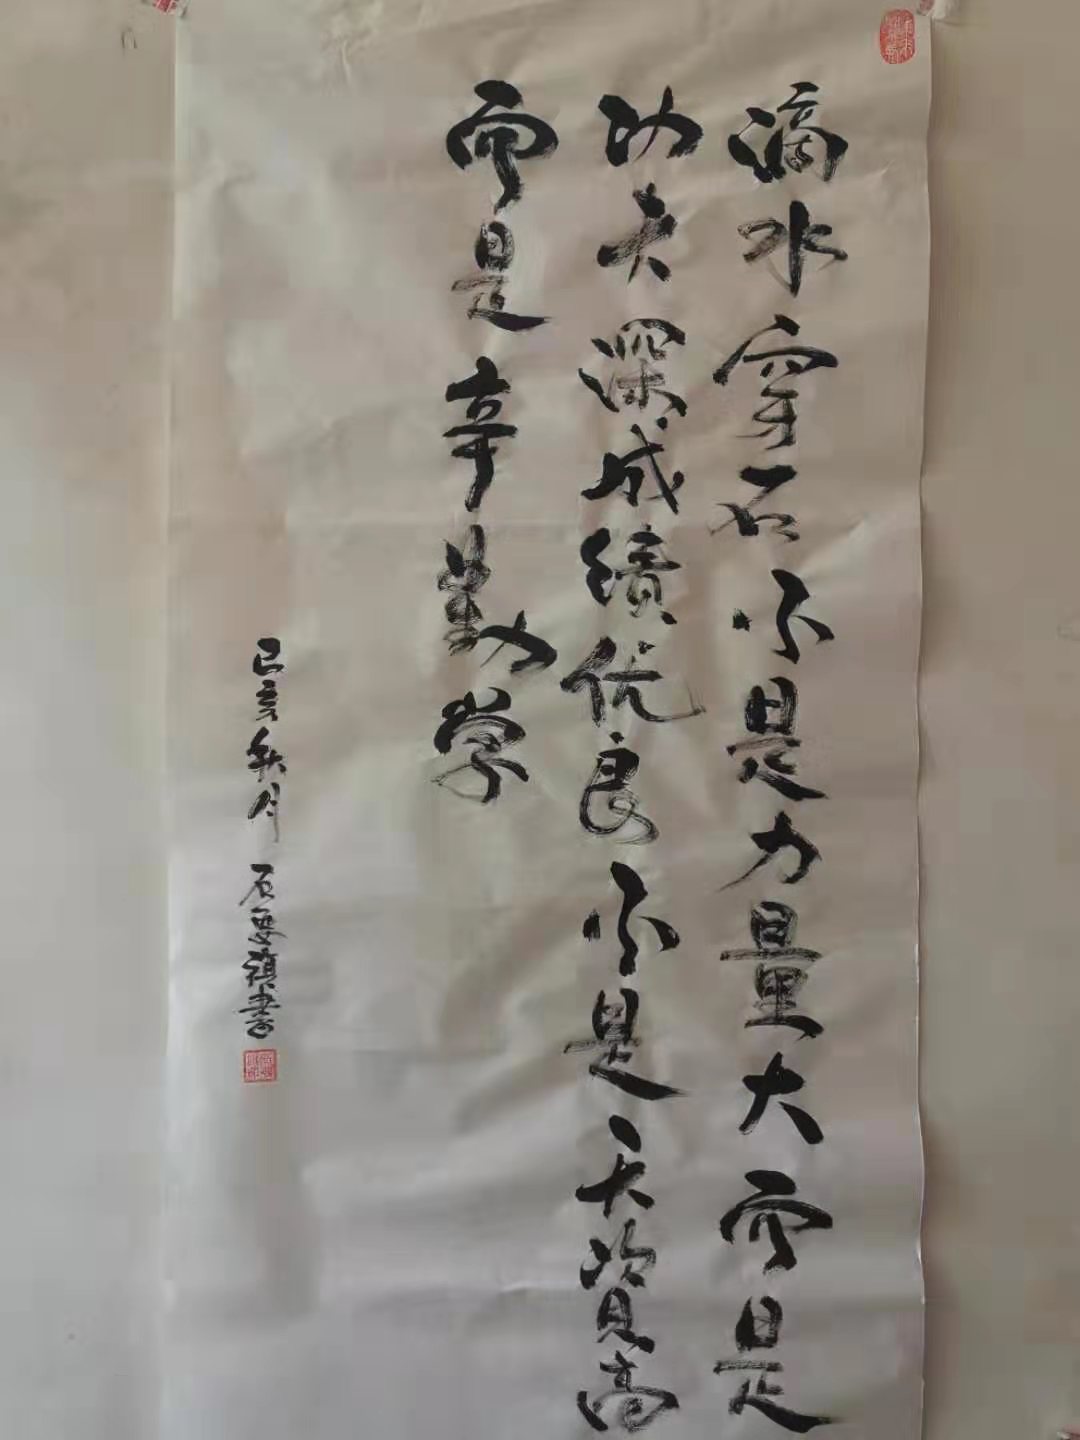 滴水穿石不是力量大而是
功夫深成绩优良不是天资高
而是辛勤学
己亥秋月 石要祺書